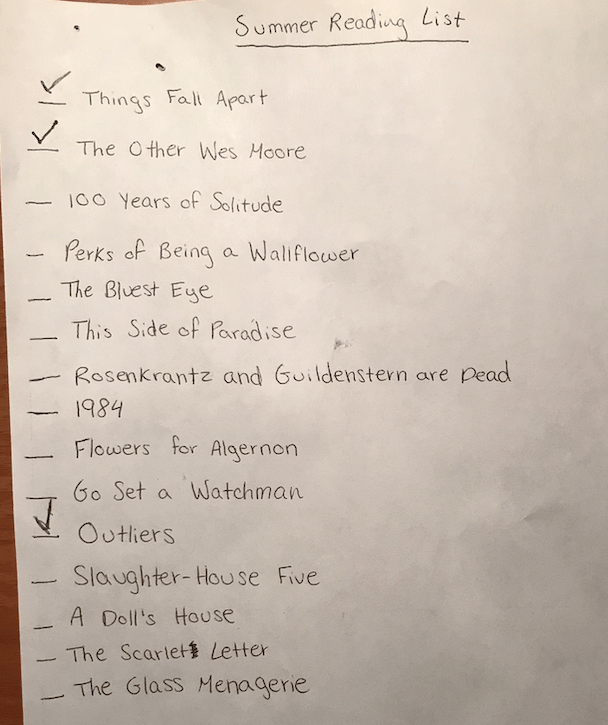 Summer Reading List
✓ Things Fall Apart
✓ The Other Wes Moore
— 100 Years of Solitude
— Perks of Being a Wallflower
— The Bluest Eye
— This Side of Paradise
— Rosenkrantz and Guildenstern are Dead
— 1984
— Flowers for Algernon
— Go Set a Watchman
✓ Outliers
— Slaughter-House Five
— A Doll's House
— The Scarlett Letter
— The Glass Menagerie